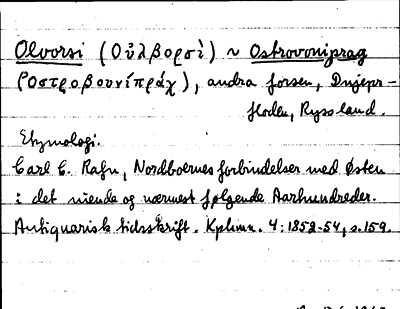 Olvorsi (Οὐλβορσὶ) ~ Ostrovoniprag
(Οστροβουνίπράχ), andra forsen, Dnjepr-
floden, Ryssland.
Etymologi.
Carl C. Rafn, Nordboernes forbindelser med Østen
i det niende og nærmest følgende Aarhundreder.
Antiquarisk tidsskrift. Kphmn. 4: 1852-54, s. 159.